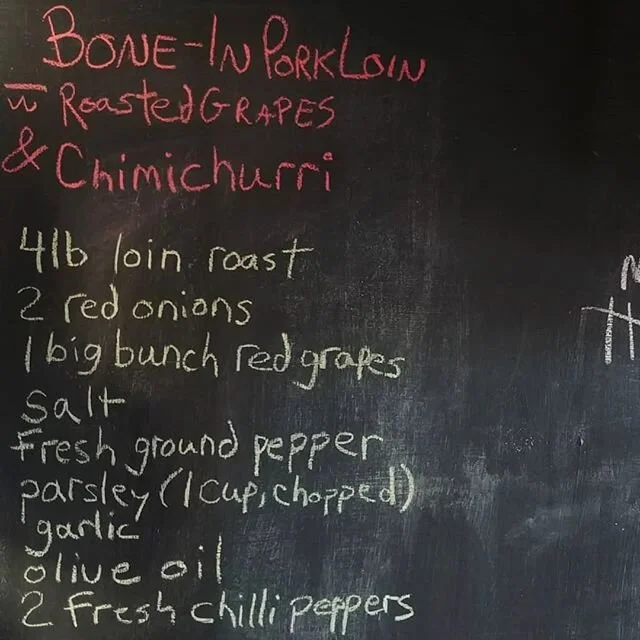 BONE-IN PORK LOIN
w Roasted GRAPES
& Chimichurri
4lb loin roast
2 red onions
1 big bunch red grapes
salt
fresh ground pepper
parsley (1 cup, chopped)
garlic
olive oil
2 fresh chilli peppers